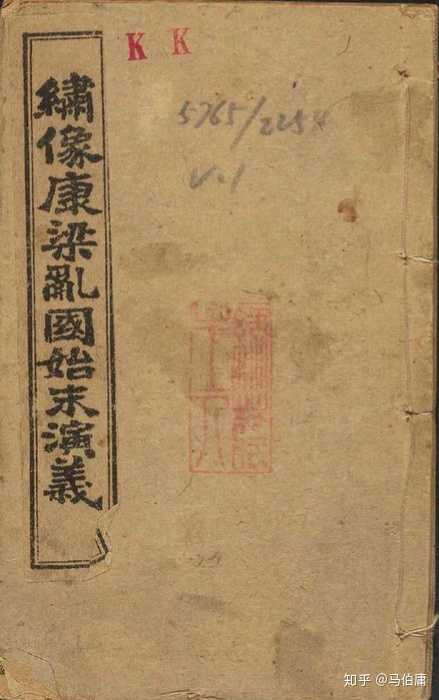 繡像康梁亂國始末演義
K K
5765/2254
v.1
知乎 @马伯庸